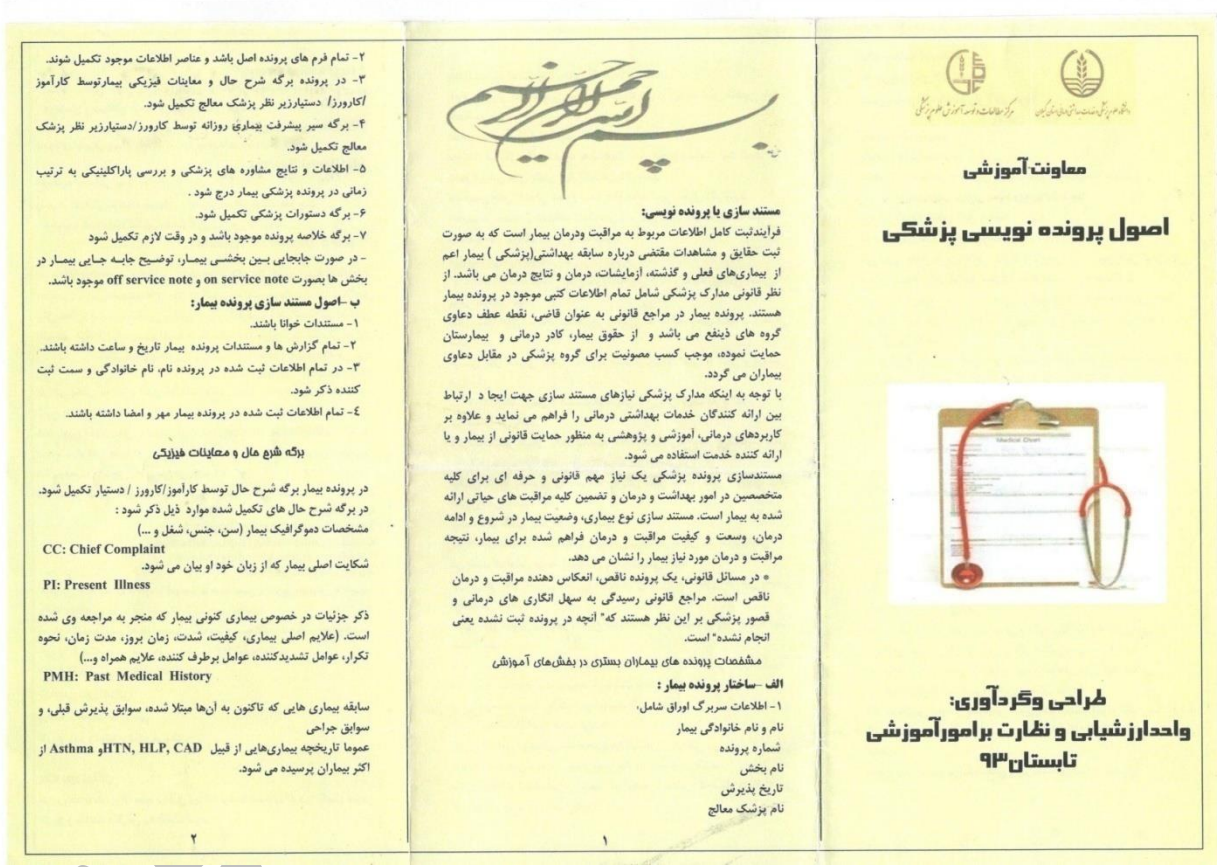 دانشگاه علوم پزشکی و خدمات بهداشتی درمانی استان گیلان
مرکز مطالعات و توسعه آموزش علوم پزشکی
معاونت آموزشی
اصول پرونده نویسی پزشکی
Medical Chart
طراحی وگردآوری:
واحدارزشیابی و نظارت برامورآموزشی
تابستان۹۳
بسم الله الرحمن الرحیم
مستند سازی یا پرونده نویسی:
فرآیندثبت کامل اطلاعات مربوط به مراقبت ودرمان بیمار است که به صورت
ثبت حقایق و مشاهدات مقتضی درباره سابقه بهداشتی(پزشکی ) بیمار اعم
از بیماری‌های فعلی و گذشته، آزمایشات، درمان و نتایج درمان می باشد. از
نظر قانونی مدارک پزشکی شامل تمام اطلاعات کتبی موجود در پرونده بیمار
هستند. پرونده بیمار در مراجع قانونی به عنوان قاضی، نقطه عطف دعاوی
گروه های ذینفع می باشد و از حقوق بیمار، کادر درمانی و بیمارستان
حمایت نموده، موجب کسب مصونیت برای گروه پزشکی در مقابل دعاوی
بیماران می گردد.
با توجه به اینکه مدارک پزشکی نیازهای مستند سازی جهت ایجا د ارتباط
بین ارائه کنندگان خدمات بهداشتی درمانی را فراهم می نماید و علاوه بر
کاربردهای درمانی، آموزشی و پژوهشی به منظور حمایت قانونی از بیمار و یا
ارائه کننده خدمت استفاده می شود.
مستندسازی پرونده پزشکی یک نیاز مهم قانونی و حرفه ای برای کلیه
متخصصین در امور بهداشت و درمان و تضمین کلیه مراقبت های حیاتی ارائه
شده به بیمار است. مستند سازی نوع بیماری، وضعیت بیمار در شروع و ادامه
درمان، وسعت و کیفیت مراقبت و درمان فراهم شده برای بیمار، نتیجه
مراقبت و درمان مورد نیاز بیمار را نشان می دهد.
* در مسائل قانونی، یک پرونده ناقص، انعکاس دهنده مراقبت و درمان
ناقص است. مراجع قانونی رسیدگی به سهل انگاری های درمانی و
قصور پزشکی بر این نظر هستند که" آنچه در پرونده ثبت نشده یعنی
انجام نشده" است.
مشخصات پرونده های بیماران بستری در بخش‌های آموزشی
الف –ساختار پرونده بیمار :
۱- اطلاعات سربرگ اوراق شامل،
نام و نام خانوادگی بیمار
شماره پرونده
نام بخش
تاریخ پذیرش
نام پزشک معالج
۱
۲- تمام فرم های پرونده اصل باشد و عناصر اطلاعات موجود تکمیل شوند.
۳- در پرونده برگه شرح حال و معاینات فیزیکی بیمارتوسط کارآموز
/کارورز/ دستیارزیر نظر پزشک معالج تکمیل شود.
۴- برگه سیر پیشرفت بیماری روزانه توسط کارورز/دستیارزیر نظر پزشک
معالج تکمیل شود.
۵- اطلاعات و نتایج مشاوره های پزشکی و بررسی پاراکلینیکی به ترتیب
زمانی در پرونده پزشکی بیمار درج شود .
۶- برگه دستورات پزشکی تکمیل شود.
۷- برگه خلاصه پرونده موجود باشد و در وقت لازم تکمیل شود
- در صورت جابجایی بین بخشی بیمار، توضیح جابه جایی بیمار در
بخش ها بصورت on service note و off service note موجود باشد.
ب –اصول مستند سازی پرونده بیمار:
۱- مستندات خوانا باشند.
۲- تمام گزارش ها و مستندات پرونده بیمار تاریخ و ساعت داشته باشند.
۳- در تمام اطلاعات ثبت شده در پرونده نام، نام خانوادگی و سمت ثبت
کننده ذکر شود.
٤- تمام اطلاعات ثبت شده در پرونده بیمار مهر و امضا داشته باشند.
برگه شرح حال و معاینات فیزیکی
در پرونده بیمار برگه شرح حال توسط کارآموز/کارورز / دستیار تکمیل شود.
در برگه شرح حال های تکمیل شده موارد ذیل ذکر شود :
مشخصات دموگرافیک بیمار (سن، جنس، شغل و ...)
CC: Chief Complaint
شکایت اصلی بیمار که از زبان خود او بیان می شود.
PI: Present Illness
ذکر جزئیات در خصوص بیماری کنونی بیمار که منجر به مراجعه وی شده
است. (علایم اصلی بیماری، کیفیت، شدت، زمان بروز، مدت زمان، نحوه
تکرار، عوامل تشدیدکننده، عوامل برطرف کننده، علایم همراه و...)
PMH: Past Medical History
سابقه بیماری هایی که تاکنون به آن‌ها مبتلا شده، سوابق پذیرش قبلی، و
سوابق جراحی
عموما تاریخچه بیماری‌هایی از قبیل HTN, HLP, CAD و Asthma از
اکثر بیماران پرسیده می شود.
۲